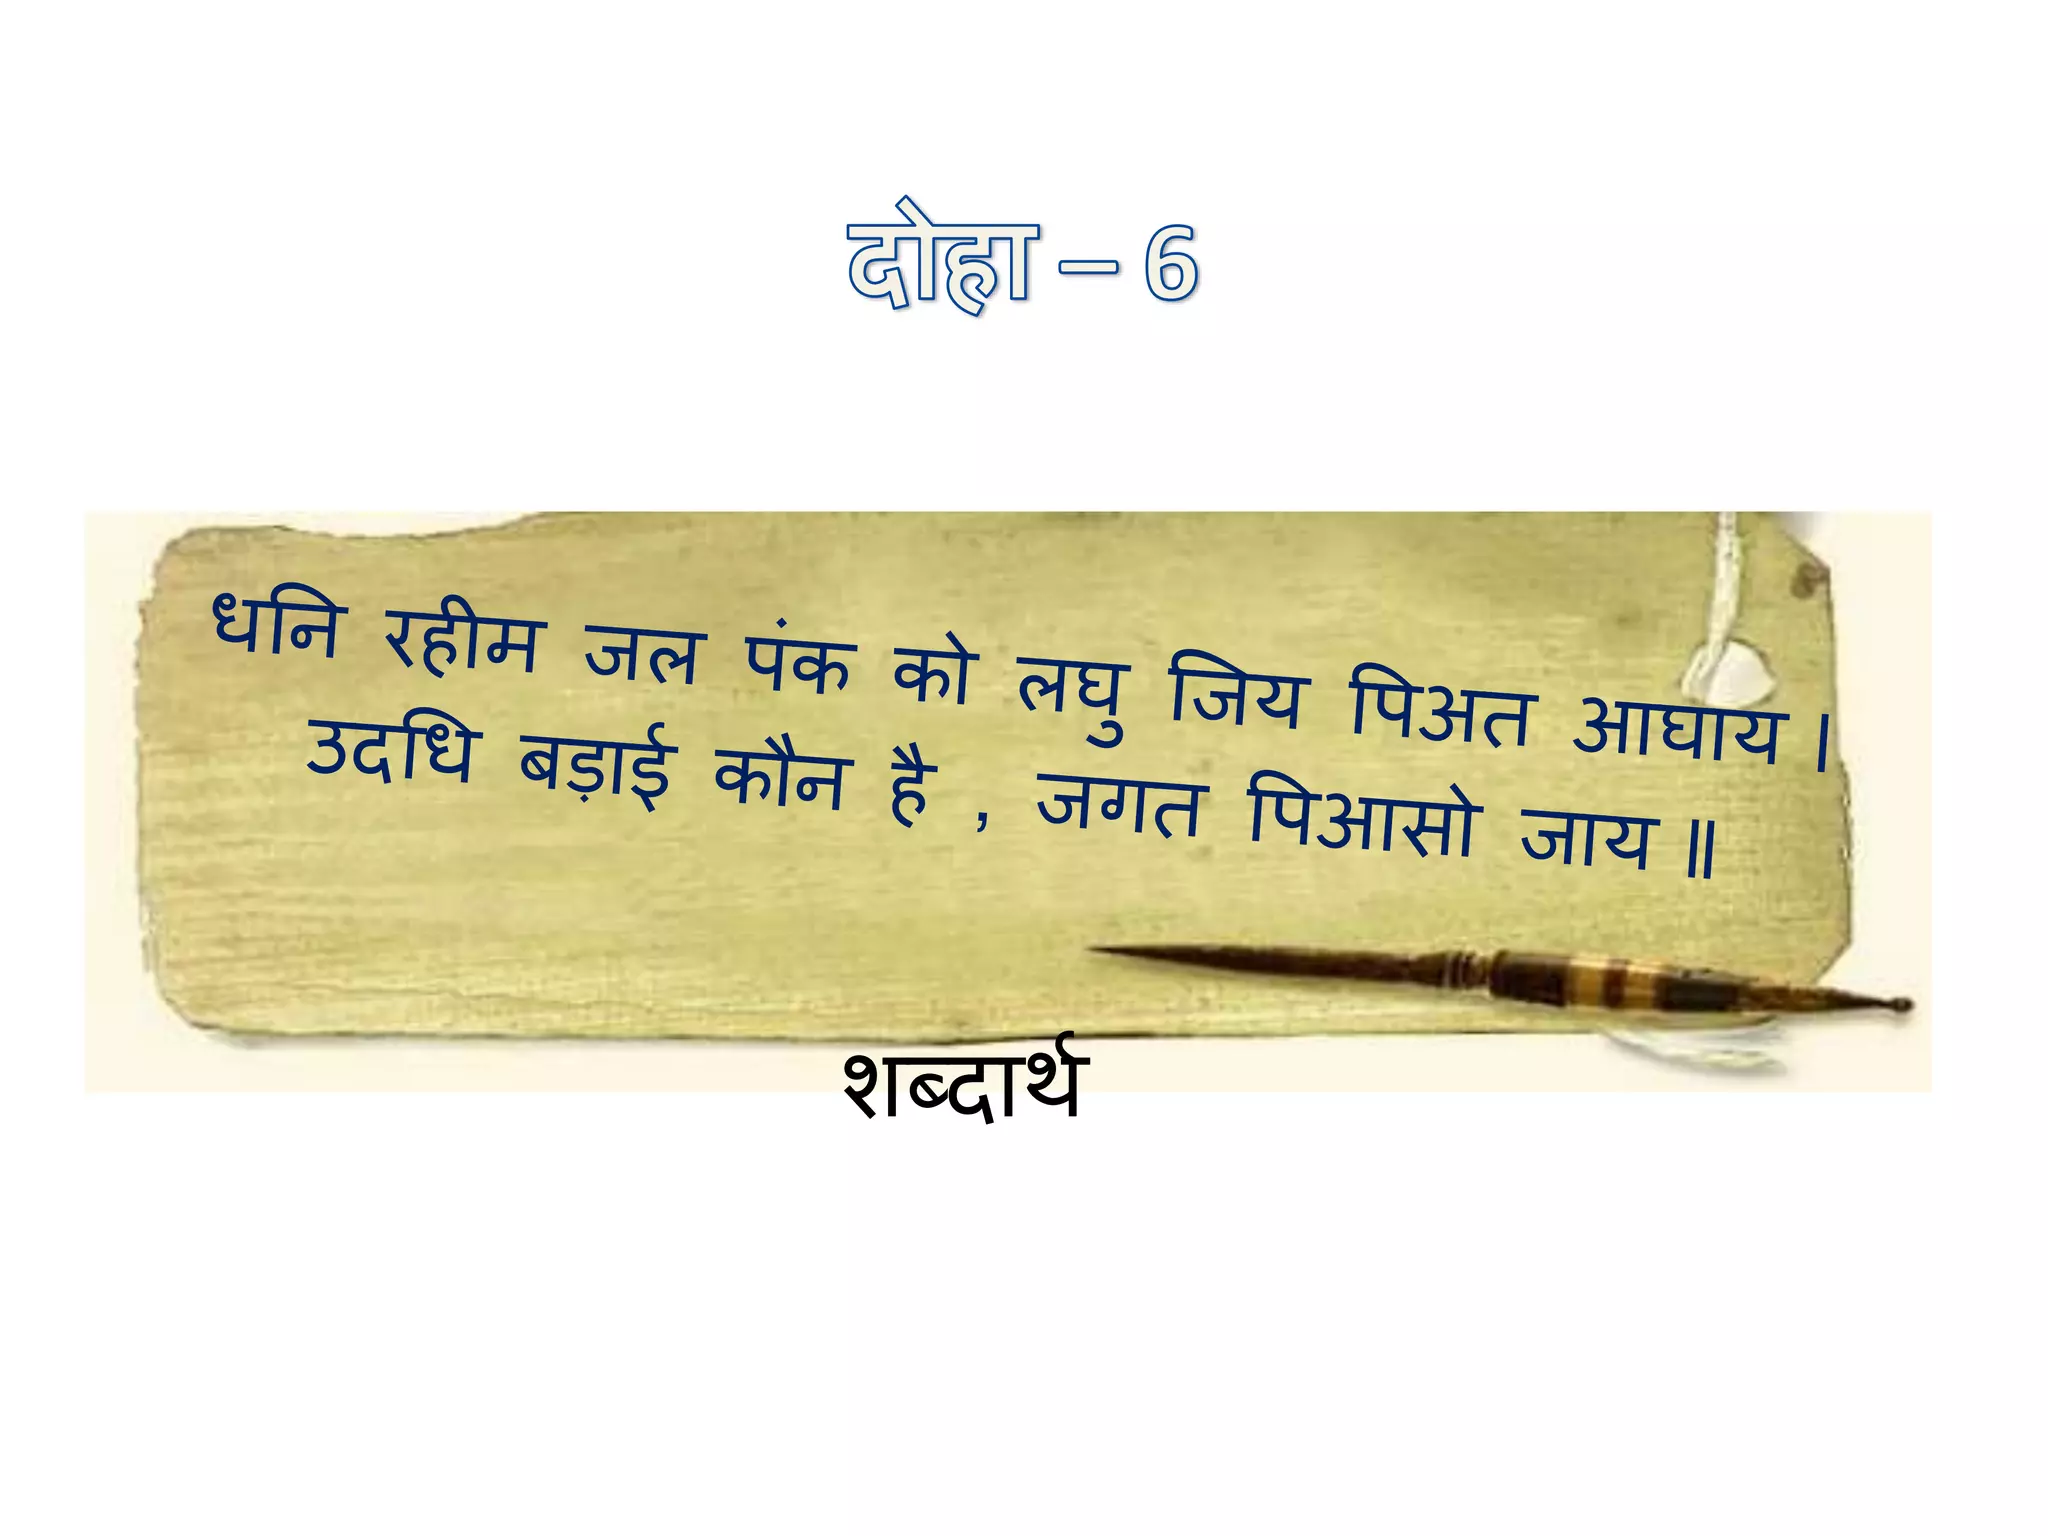 दोहा – 6
धनि रहीम जल पंक को लघु जिय पिअत आघाय ।
उदधि बड़ाई कौन है , जगत पिआसो जाय ॥
शब्दार्थ